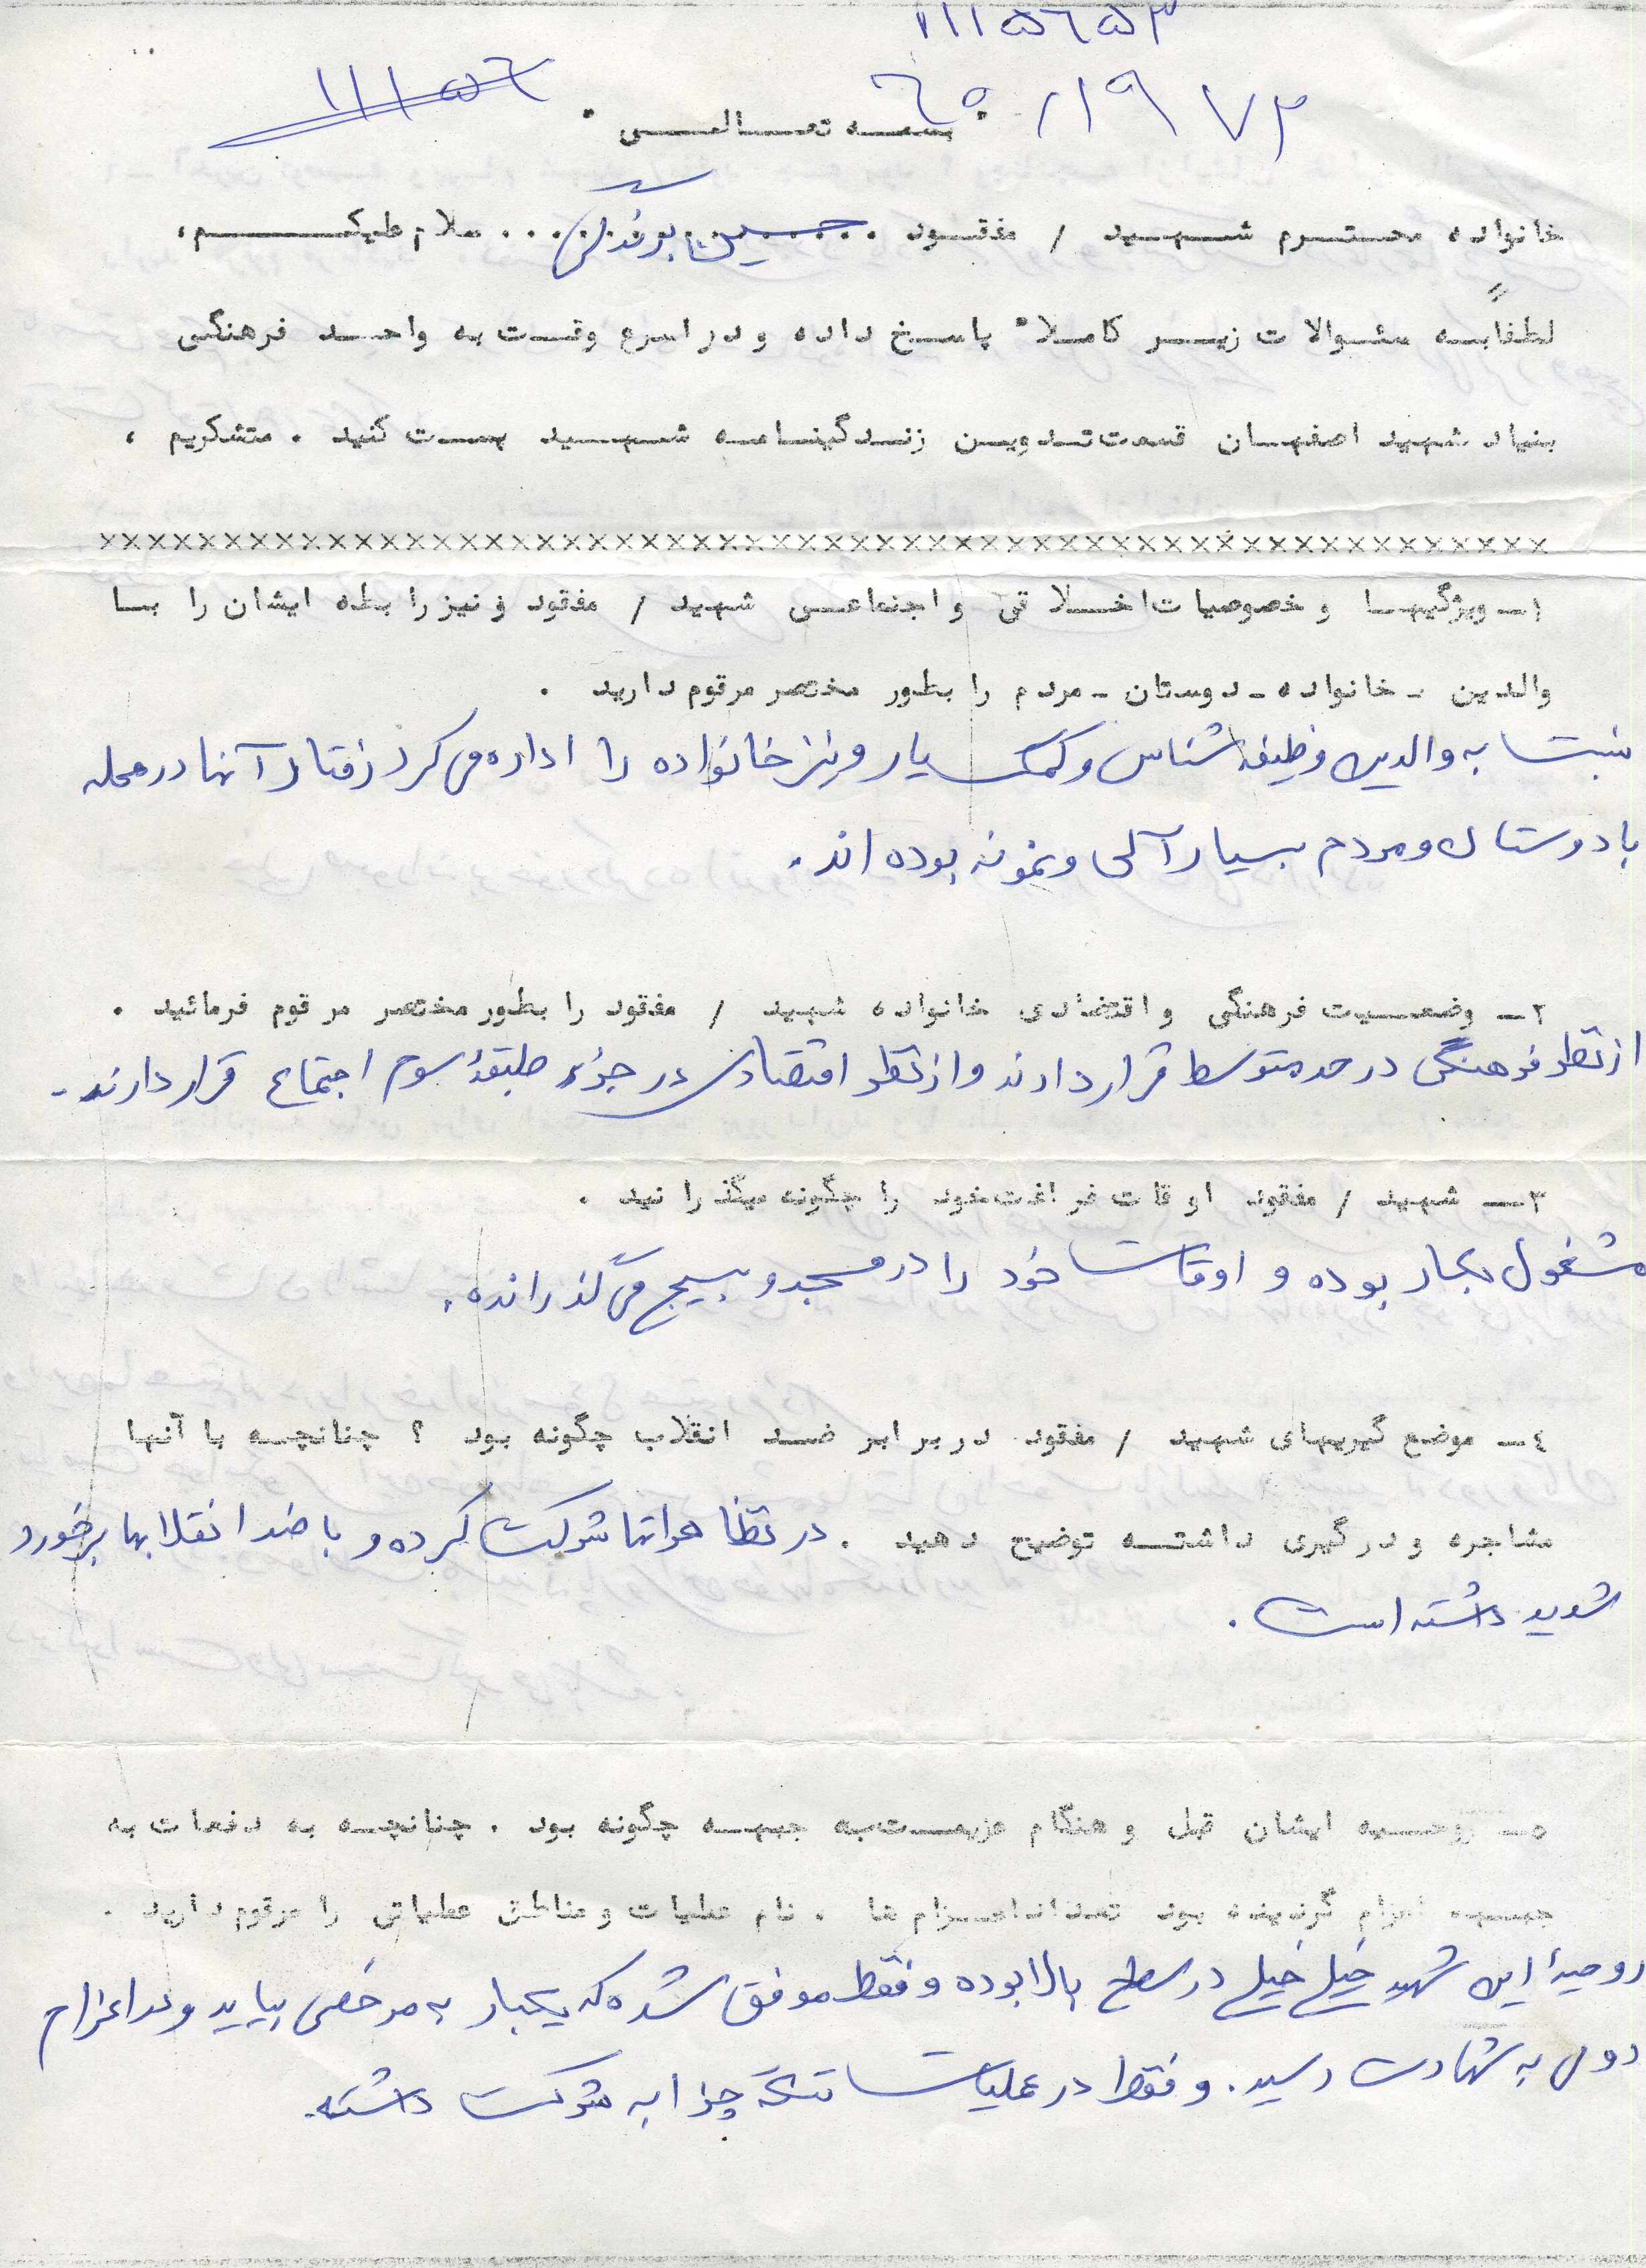 ۱۱۱۵۶۵۳
۶۵۰۱۹۷۳
۱۱۱۵۶
" بسمه تعالی "
خانواده محترم شهید / مفقود . حسین . . . . سلام علیکم ،
لطفاً به سئوالات زیر کاملا" پاسخ داده و در اسرع وقت به واحد فرهنگی
بنیاد شهید اصفهان قسمت تدوین زندگینامه شهید پست کنید . متشکریم ،
xxxxxxxxxxxxxxxxxxxxxxxxxxxxxxxxxxxxxxxxxxxxxxxxxxxxxxxx
۱- ویژگیها و خصوصیات اخلاقی و اجتماعی شهید / مفقود و نیز رابطه ایشان را با
والدین - خانواده - دوستان - مردم را بطور مختصر مرقوم دارید .
نسبت به والدین وظیفه شناس و کمک یار و نیز خانواده را اداره می کرد رفتار آنها در محله
با دوستان و مردم بسیار آلی و نمونه بوده اند .
۲- وضعیت فرهنگی و اقتصادی خانواده شهید / مفقود را بطور مختصر مرقوم فرمائید .
از نظر فرهنگی در حد متوسط قرار دارند و از نظر اقتصادی در جزء طبقهٔ سوم اجتماع قرار دارند .
۳- شهید / مفقود اوقات فراغت خود را چگونه میگذرانید .
مشغول بکار بوده و اوقات خود را در مسجد و بسیج می گذرانده .
٤- موضع گیریهای شهید / مفقود در برابر ضد انقلاب چگونه بود ؟ چنانچه با آنها
مشاجره و درگیری داشته توضیح دهید . در تظاهراتها شرکت کرده و با ضد انقلابها برخورد
شدید داشته است .
۵- روحیه ایشان قبل و هنگام عزیمت به جبهه چگونه بود . چنانچه به دفعات به
جبهه اعزام گردیده بود تعداد اعزام ها . نام عملیات و مناطق عملیاتی را مرقوم دارید .
روحیهٔ این شهید خیلی خیلی در سطح بالا بوده و فقط موفق شده که یکبار به مرخصی بیاید و در اعزام
دوم به شهادت رسید . و فقط در عملیات تنگه چزابه شرکت داشته .